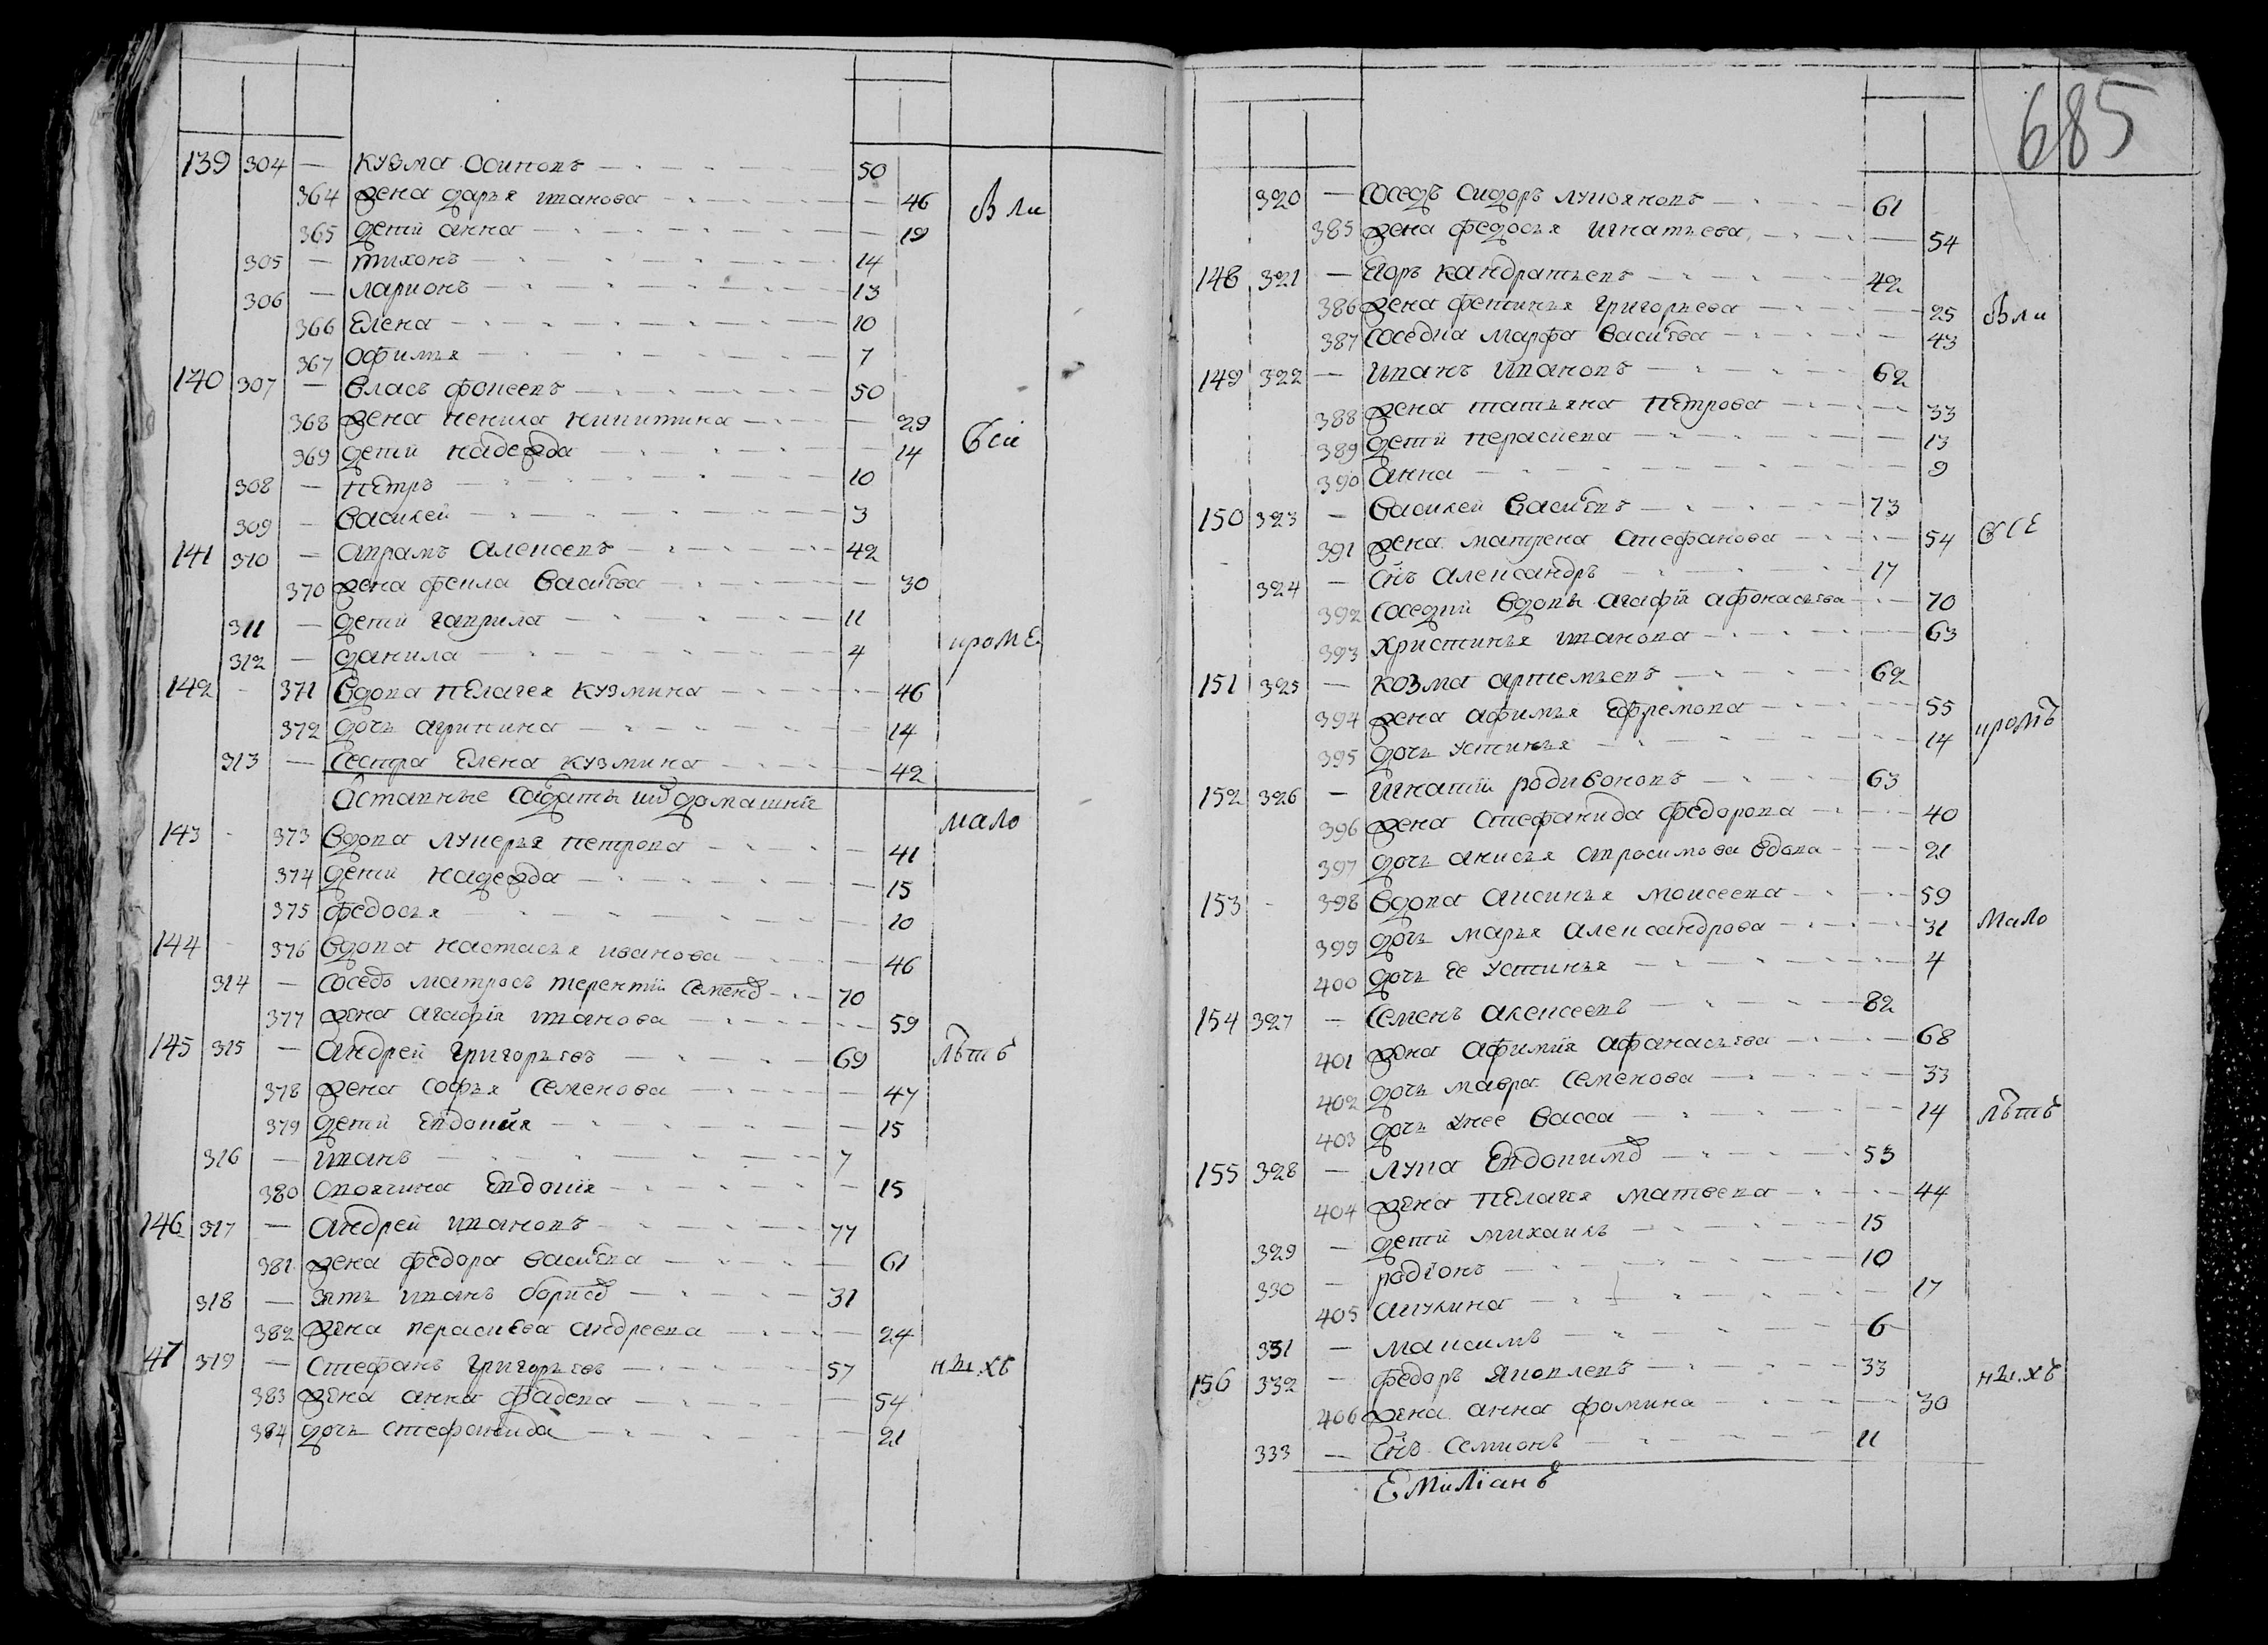 139 304 — кузма Осиповъ 50
364 жена дарья иванова — 46 Вли
365 дети анна — 19
305 — тихонъ 14
306 — ларионъ 13
366 Елена 10
367 офимья 7
140 307 — власъ фокеевъ 50
368 жена ненила никитина — 29
369 дети надежда — 14 Всѣ
308 — петръ 10
309 — василей 3
141 310 — аврамъ алексеевъ 42
370 жена фекла васильева — 30
311 — дети гаврила 11
312 — данила 4 кроме
142 - 371 вдова пелагея кузмина 46
372 дочь агрипина — 14
313 — сестра Елена кузмина 42
Оставные солдаты и домашние
143 - 373 вдова лукерья петрова — 41 мало
374 дети надежда — 15
375 федосья — 10
144 - 376 вдова настасья иванова — 46
314 — соседъ матросъ терентий семенов 70
377 жена агафия иванова 59
145 315 — андрей григорьевъ 69 лѣтъ
378 жена софья семенова — 47
379 дети Евдокия — 15
316 — иванъ 7
380 своячина Евдокия — 15
146 317 — андрей ивановъ 77
381 жена федора васильева — 61
318 — зять иванъ борисов 31
382 жена парасковя андреева — 24
47 319 — стефанъ григорьевъ 57 нихъ
383 жена анна фадеева — 54
384 дочь стефанида — 21
685
320 — соседъ сидоръ лукояновъ 61
385 жена федосья игнатьева — 54
148 321 — Егоръ кандратьевъ 42
386 жена фетинья григорьева — 25 Вли
387 соседка марфа васильева — 43
149 322 — иванъ ивановъ 62
388 жена татьяна петрова — 33
389 дети парасковя — 13
390 анна — 9
150 323 — василей васильевъ 73
391 жена матрена стефанова — 54 все
324 — сынъ александръ 17
392 соседки вдовы агафия афонасьева 70
393 христинья иванова 63
151 325 — козма артемьевъ 62
394 жена афимья Ефремова 55 кромѣ
395 дочь устинья 14
152 326 — игнатий родивоновъ 63
396 жена стефанида федорова 40
397 дочь анисья абросимова вдова 21
153 - 398 вдова аксинья моисеева 59
399 дочь марья александрова 31 мало
400 дочь ее устинья 4
154 327 — семенъ алексеевъ 82
401 жена афимия афанасьева 68
402 дочь мавра семенова 33
403 дочь унее васса 14 лѣтъ
155 328 — лука Евдокимов 53
404 жена пелагея матвеева 44
329 — дети михаилъ 15
330 — родионъ 10
405 акулина — 17
331 — максимъ 6
156 332 — федоръ яковлевъ 33 нихъ
406 жена анна фомина — 30
333 — сынъ семионъ 11
Емилианъ